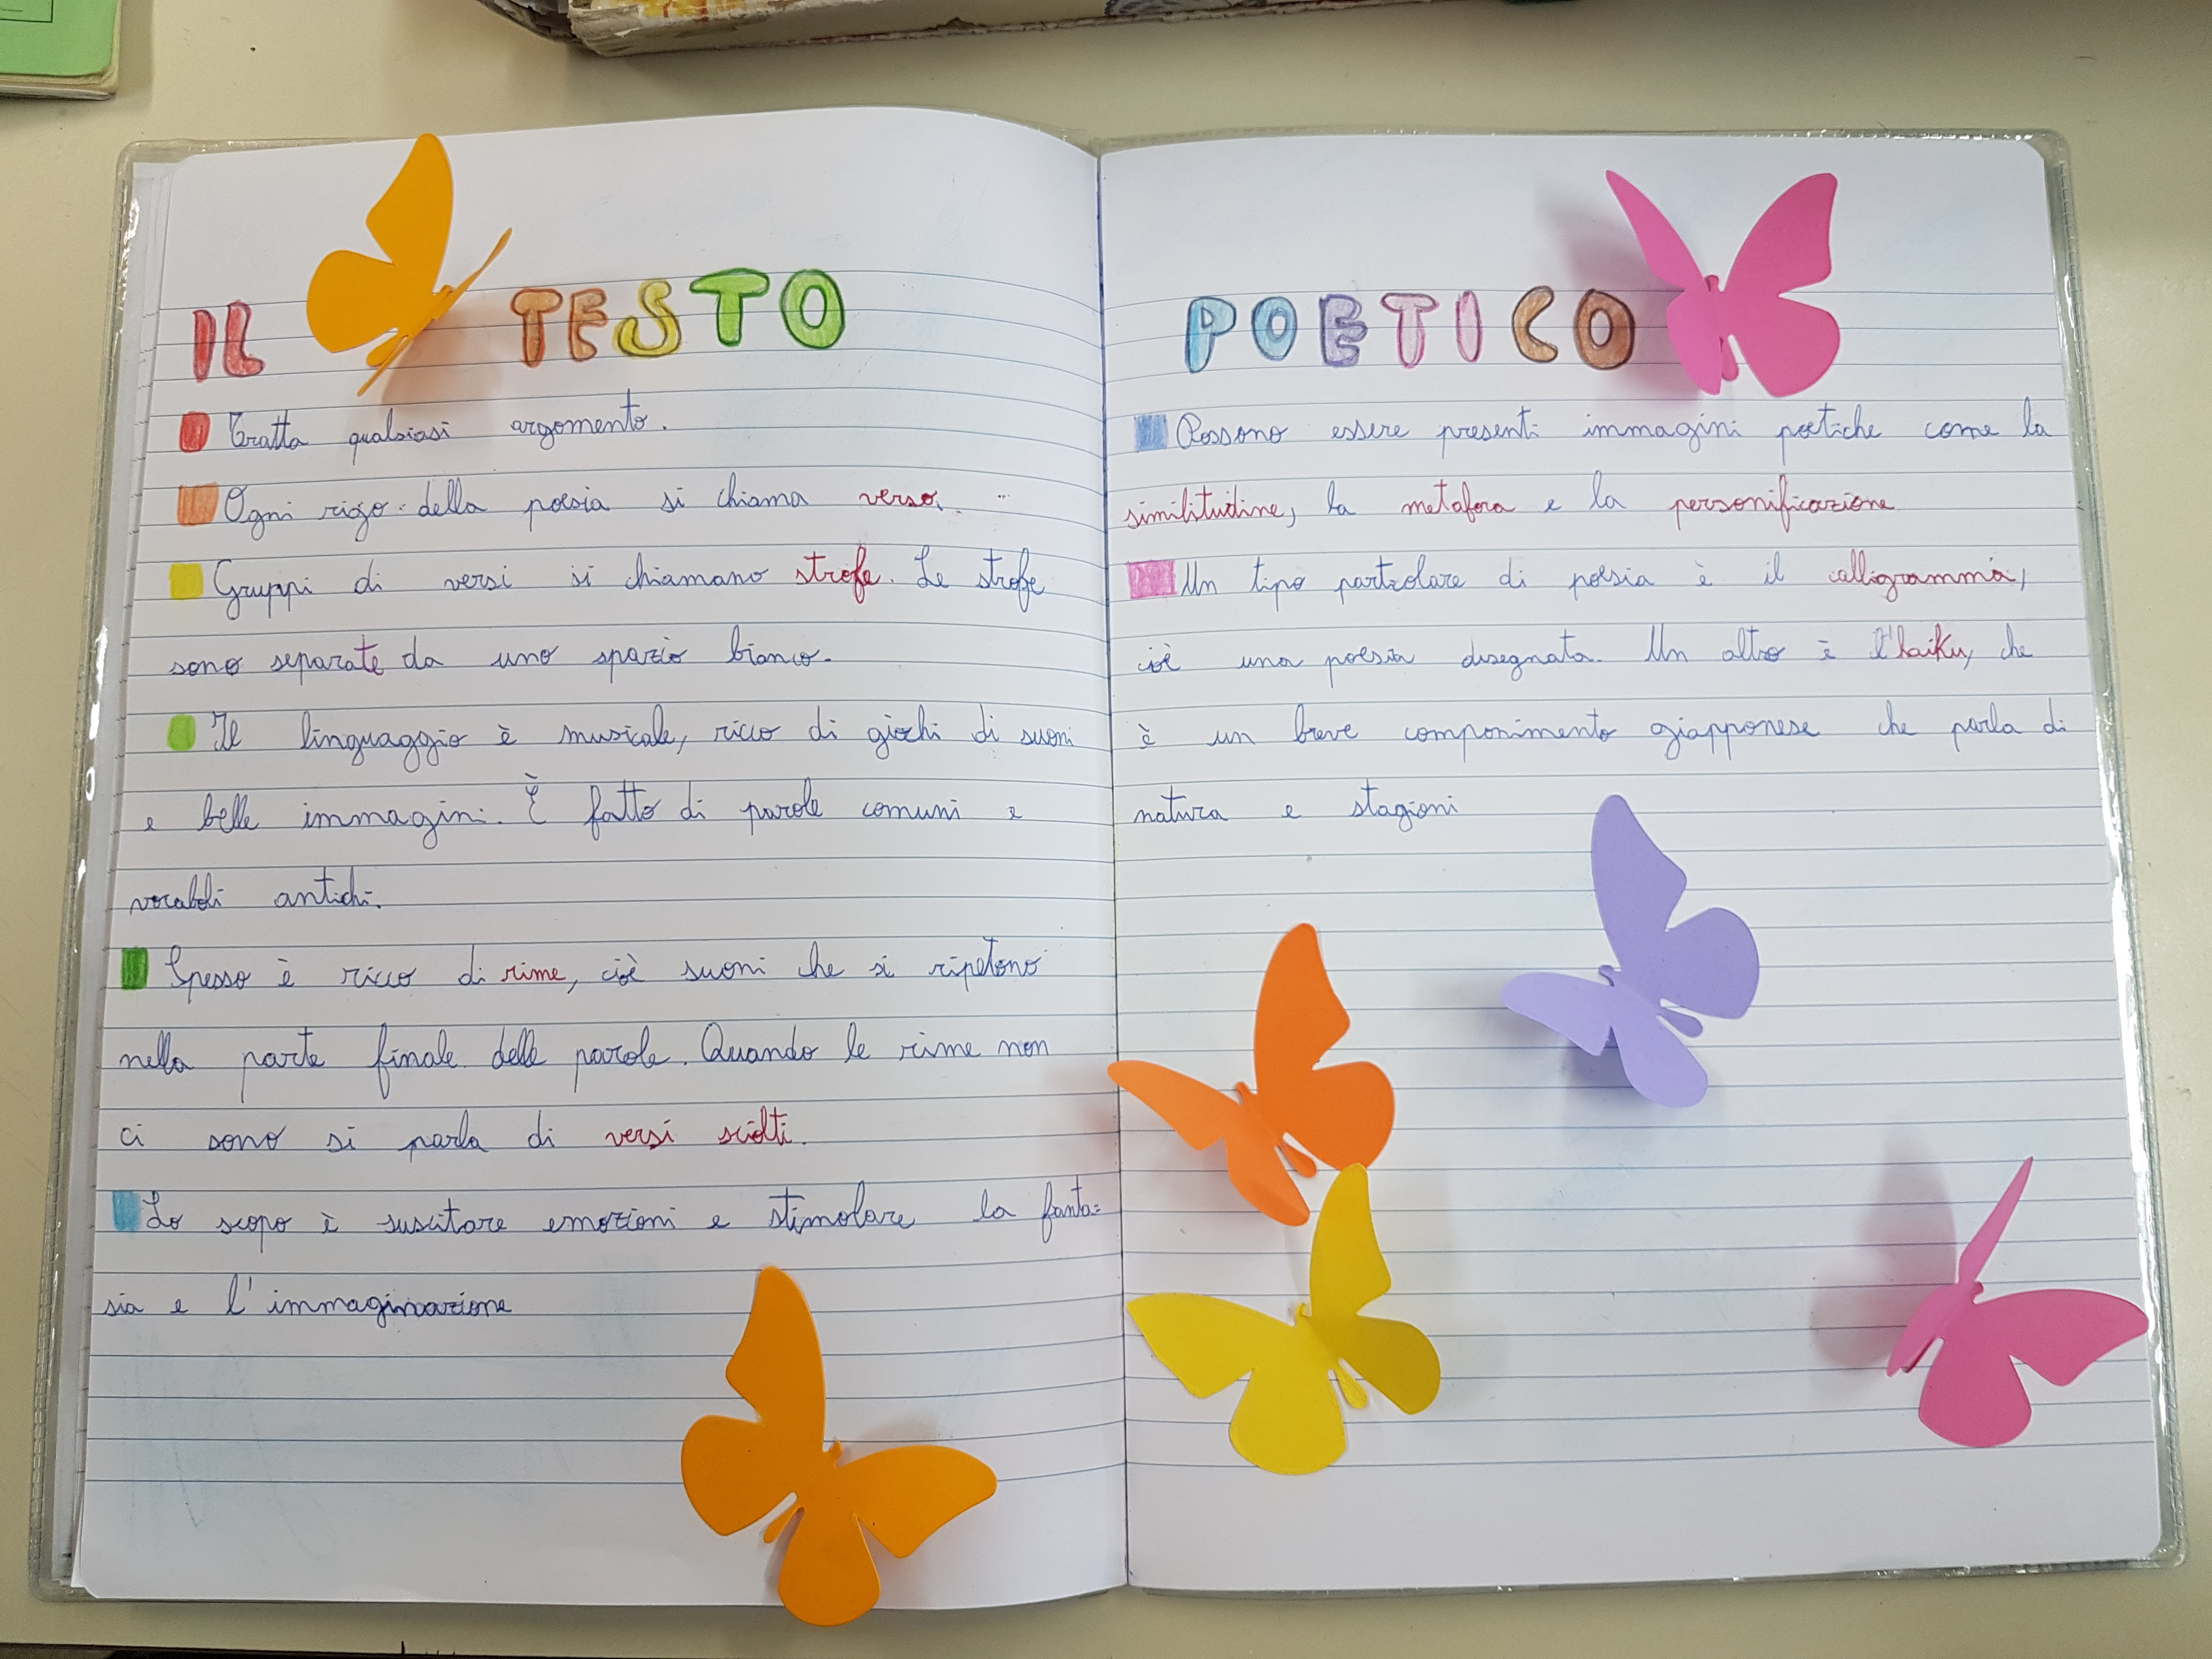 IL TESTO POETICO
Tratta qualsiasi argomento.
Ogni rigo della poesia si chiama verso.
Gruppi di versi si chiamano strofe. Le strofe
sono separate da uno spazio bianco.
Il linguaggio è musicale, ricco di giochi di suoni
e belle immagini. È fatto di parole comuni e
vocaboli antichi.
Spesso è ricco di rime, cioè suoni che si ripetono
nella parte finale delle parole. Quando le rime non
ci sono si parla di versi sciolti.
Lo scopo è suscitare emozioni e stimolare la fanta=
sia e l'immaginazione
Possono essere presenti immagini poetiche come la
similitudine, la metafora e la personificazione
Un tipo particolare di poesia è il calligramma,
cioè una poesia disegnata. Un altro è l'haiku, che
è un breve componimento giapponese che parla di
natura e stagioni